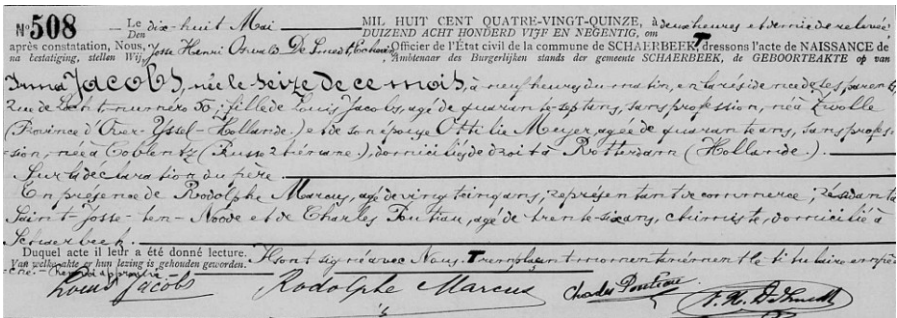 N° 508 Le dix-huit Mai MIL HUIT CENT QUATRE-VINGT-QUINZE, à deux heures et demie de relevée
Den DUIZEND ACHT HONDERD VIJF EN NEGENTIG, om
après constatation, Nous, Josse Henri Oswald De Smedt, Officier de l'État civil de la commune de SCHAERBEEK, T dressons l'acte de NAISSANCE de
na bestatiging, stellen Wij, Ambtenaar des Burgerlijken stands der gemeente SCHAERBEEK, de GEBOORTEAKTE op van
Irma Jacobs, née le seize de ce mois, à neuf heures du matin, en la résidence de ses parents,
rue de numéro 55; fille de Louis Jacobs, âgé de quarante-sept ans, sans profession, né à Zwolle
(Province d'Over-Yssel-Hollande) et de son épouse Ottilie Meyer, âgée de quarante ans, sans profes-
sion, née à Coblentz (Prusse Rhénane), domiciliés de droit à Rotterdam (Hollande).
Sur la déclaration du père.
En présence de Rodolphe Marcus, âgé de vingt cinq ans, représentant de commerce, résidant à
Saint-Josse-ten-Noode et de Charles Poutiau, âgé de trente-six ans, chimiste, domicilié à
Schaerbeek.
Duquel acte il leur a été donné lecture. Ils ont signé avec Nous. T remplaçant momentanément le titulaire empê-
Van welke akte er hun lezing is gehouden geworden.
ché. approuvé
Louis Jacobs Rodolphe Marcus Charles Poutiau J. H. De Smedt